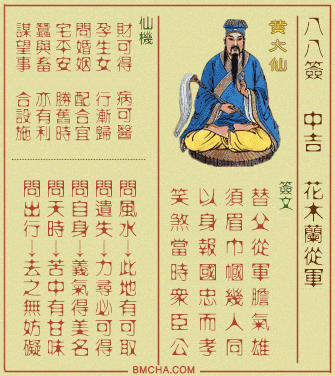 八八簽　中吉　花木蘭從軍
黃大仙
簽文
替父從軍膽氣雄
須眉巾幗幾人同
以身報國忠而孝
笑煞當時衆臣公
仙機
財可得　病可醫
孕生女　行漸歸
問婚姻　配合宜
宅平安　勝舊時
蠶與畜　亦有利
謀望事　合設施
問風水→此地有可取
問遺失→力尋必可得
問自身→義氣得美名
問天時→苦中有甘味
問出行→去之無妨礙
BMCHA.COM